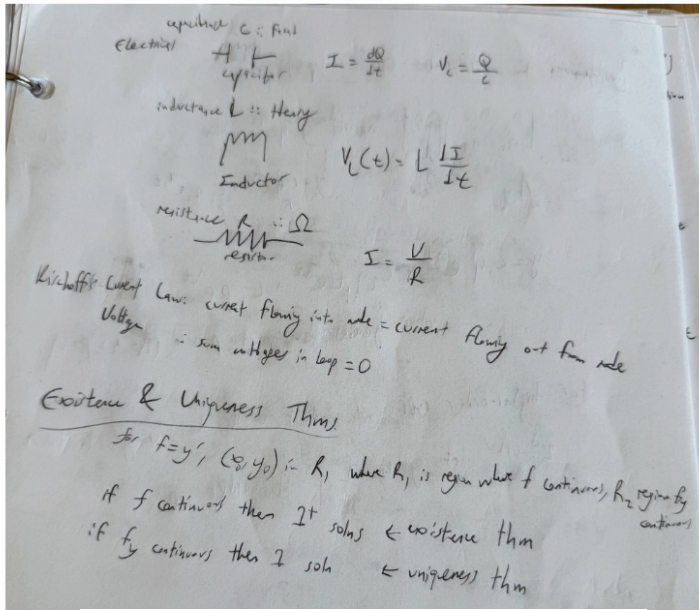 capacitance C :: Farad
Electrical
capacitor
I = dQ/dt
V_c = Q/C
inductance L :: Henry
Inductor
V_L(t) = L dI/dt
resistance R :: Ω
resistor
I = V/R
Kirchoff's Current Law: current flowing into node = current flowing out from node
Voltage :: sum voltages in loop = 0
Existence & Uniqueness Thms
for f=y', (x₀,y₀) in R₁ where R₁ is region where f continuous, R₂ region fy continuous
if f continuous then 1+ solns ← existence thm
if fy continuous then 1 soln ← uniqueness thm